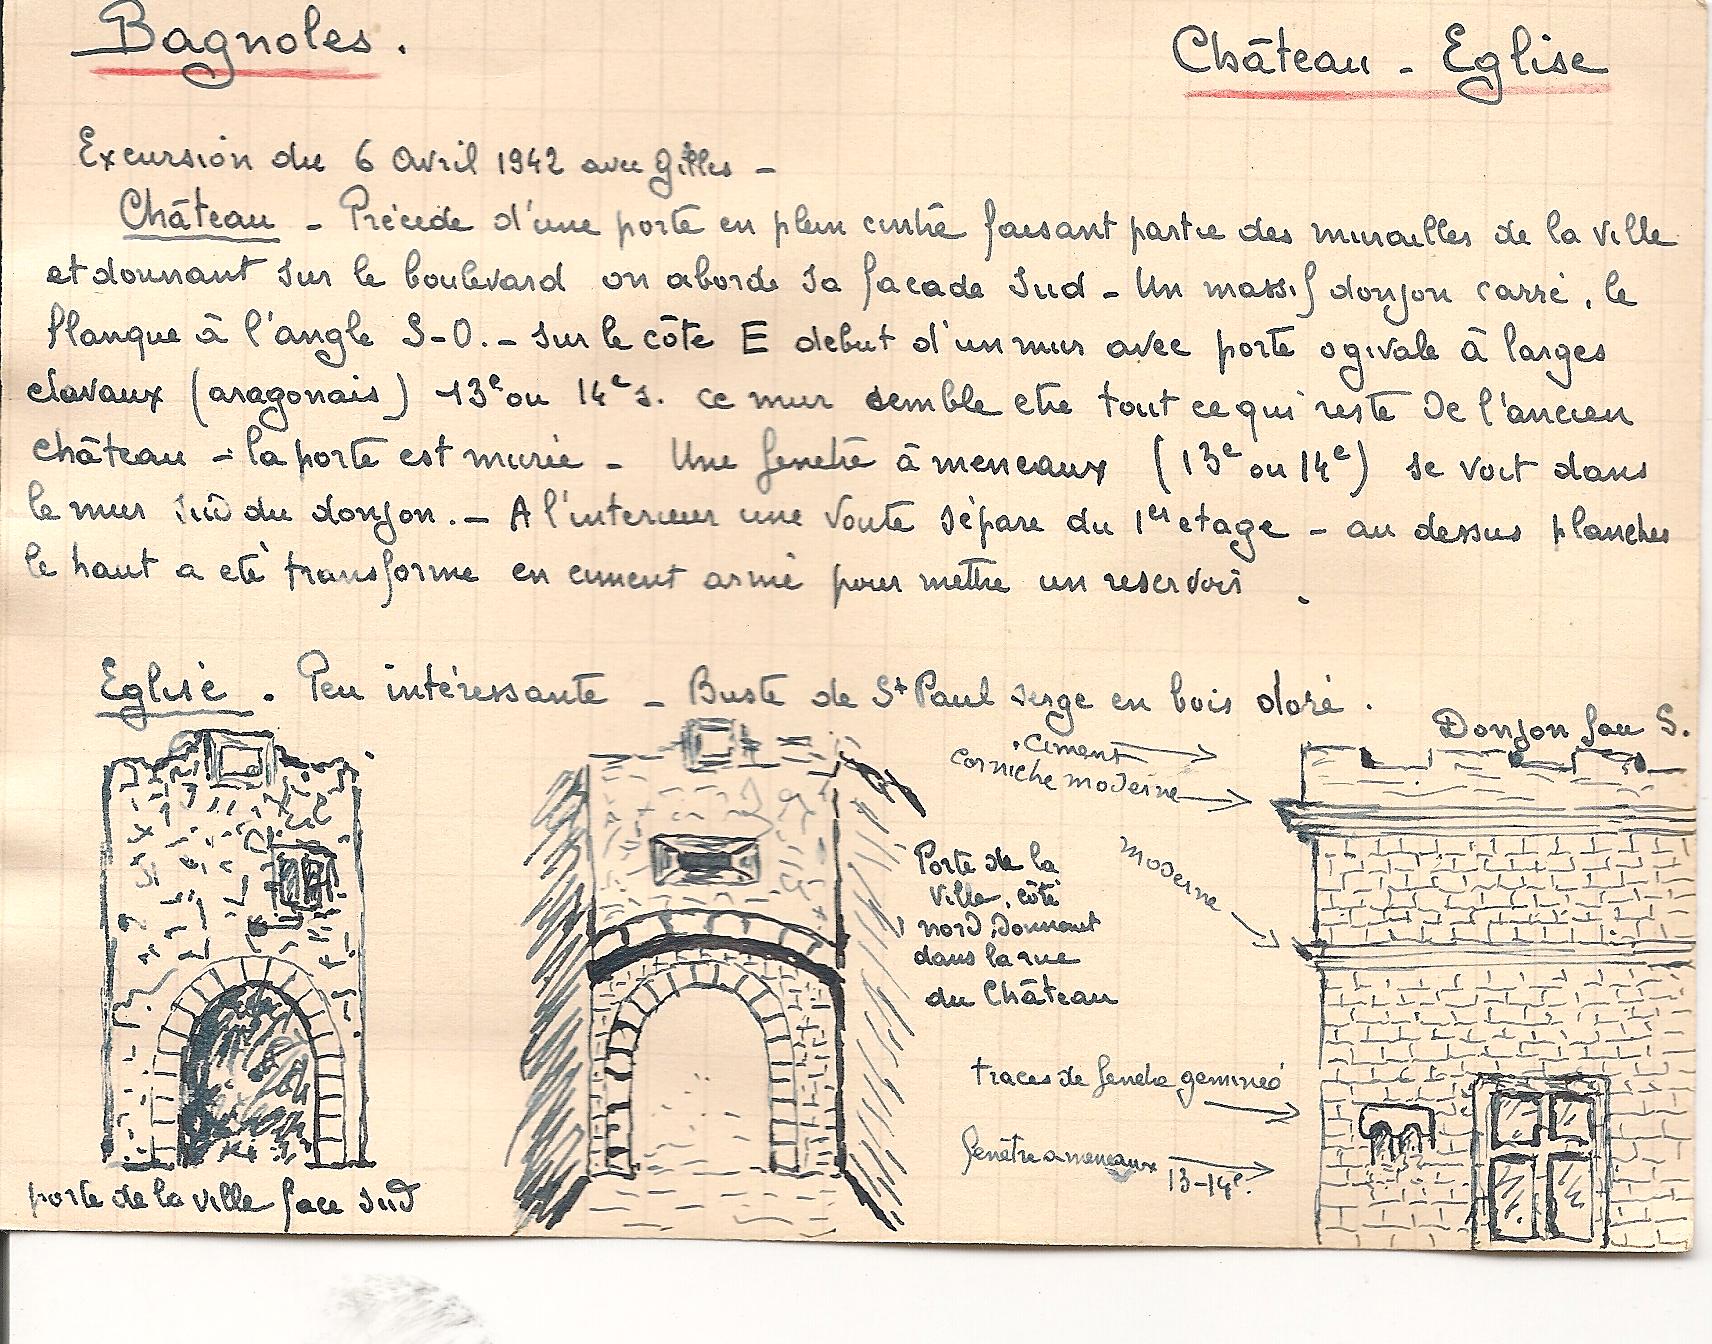 Bagnoles.
Château - Eglise
Excursion du 6 Avril 1942 avec Gilles -
Château - Précédé d'une porte en plein cintre faisant partie des murailles de la ville
et donnant sur le boulevard on aborde sa façade Sud - Un massif donjon carré, le
flanque à l'angle S-O. - sur le côté E debut d'un mur avec porte ogivale à larges
clavaux (aragonais) 13e ou 14e s. ce mur semble etre tout ce qui reste de l'ancien
château - la porte est murée - Une fenetre à meneaux (13e ou 14e) se voit dans
le mur Sud du donjon. - A l'interieur une voute sépare du 1er etage - au dessus planches
le haut a eté transformé en ciment armé pour mettre un reservoir.
Eglise. Peu intéressante - Buste de St Paul Serge en bois doré.
Donjon face S.
ciment
corniche moderne
moderne
Porte de la
Ville, côté
nord, donnant
dans la rue
du Château
traces de fenetre geminée
fenêtre a meneaux
13-14e.
porte de la ville face sud